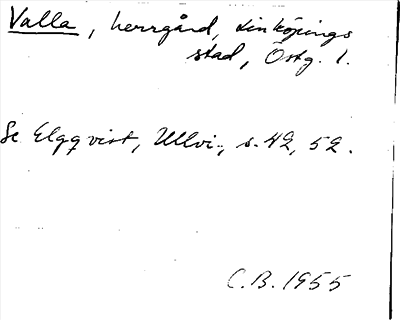 Valla, herrgård, Linköpings
stad, Östg. l.
Se Elgqvist, Ullvi., s. 42, 52.
C.B. 1955